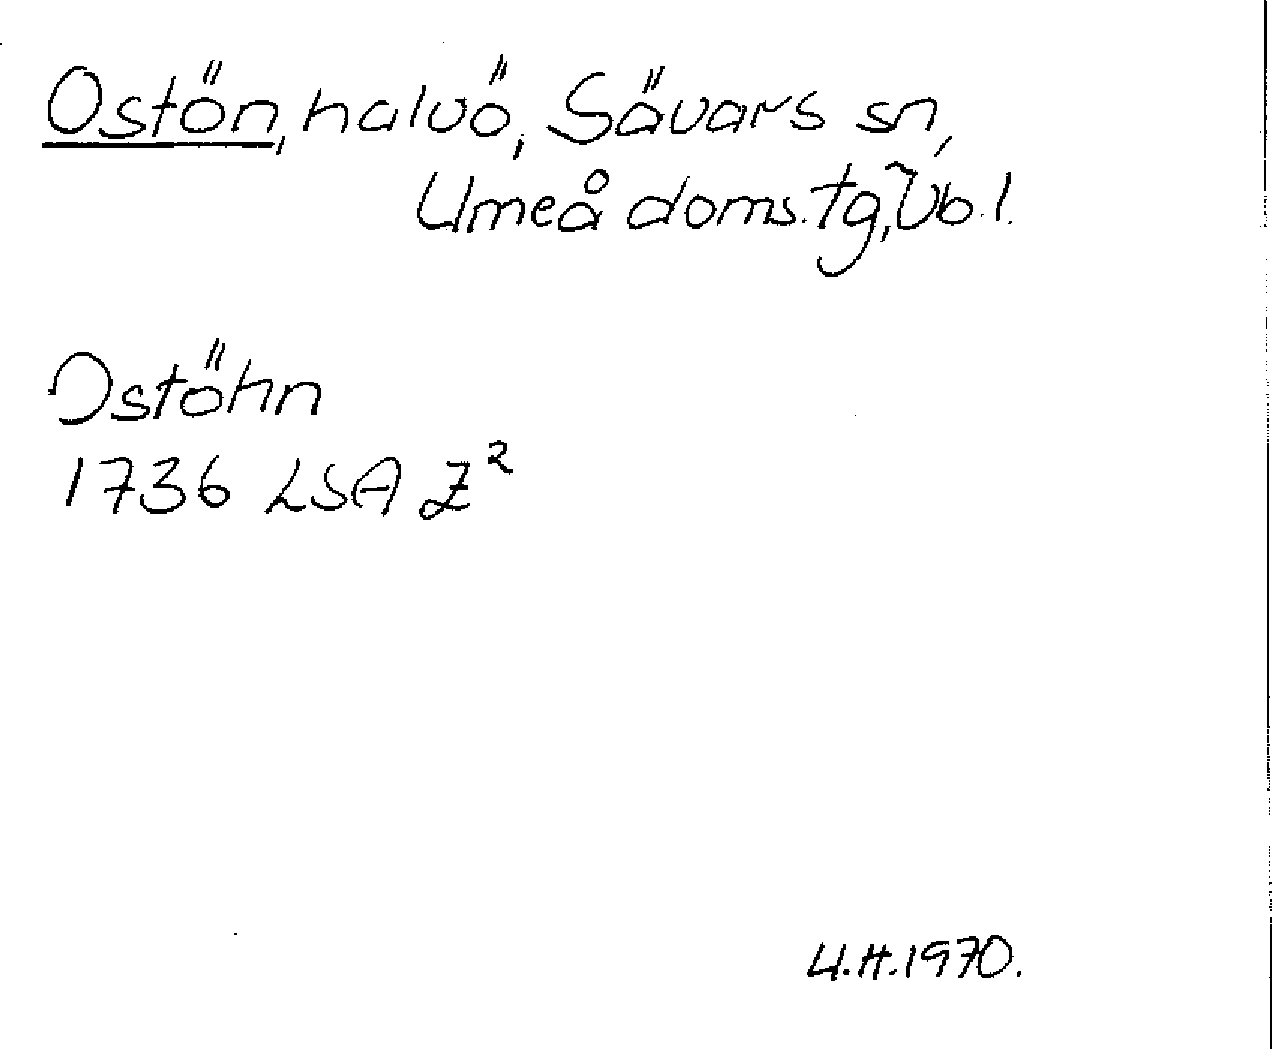 Ostön, halvö, Sävars sn,
Umeå doms. tg, Vb. l.
Ostöhn
1736 LSA Z²
U.H. 1970.